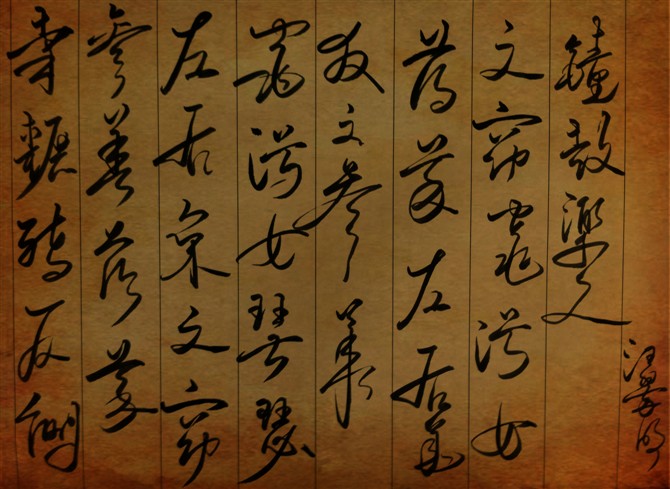 哉輾轉反側
參差荇菜
左右采之窈
窕淑女琴瑟
友之參差
荇菜左右芼
之窈窕淑女
鐘鼓樂之